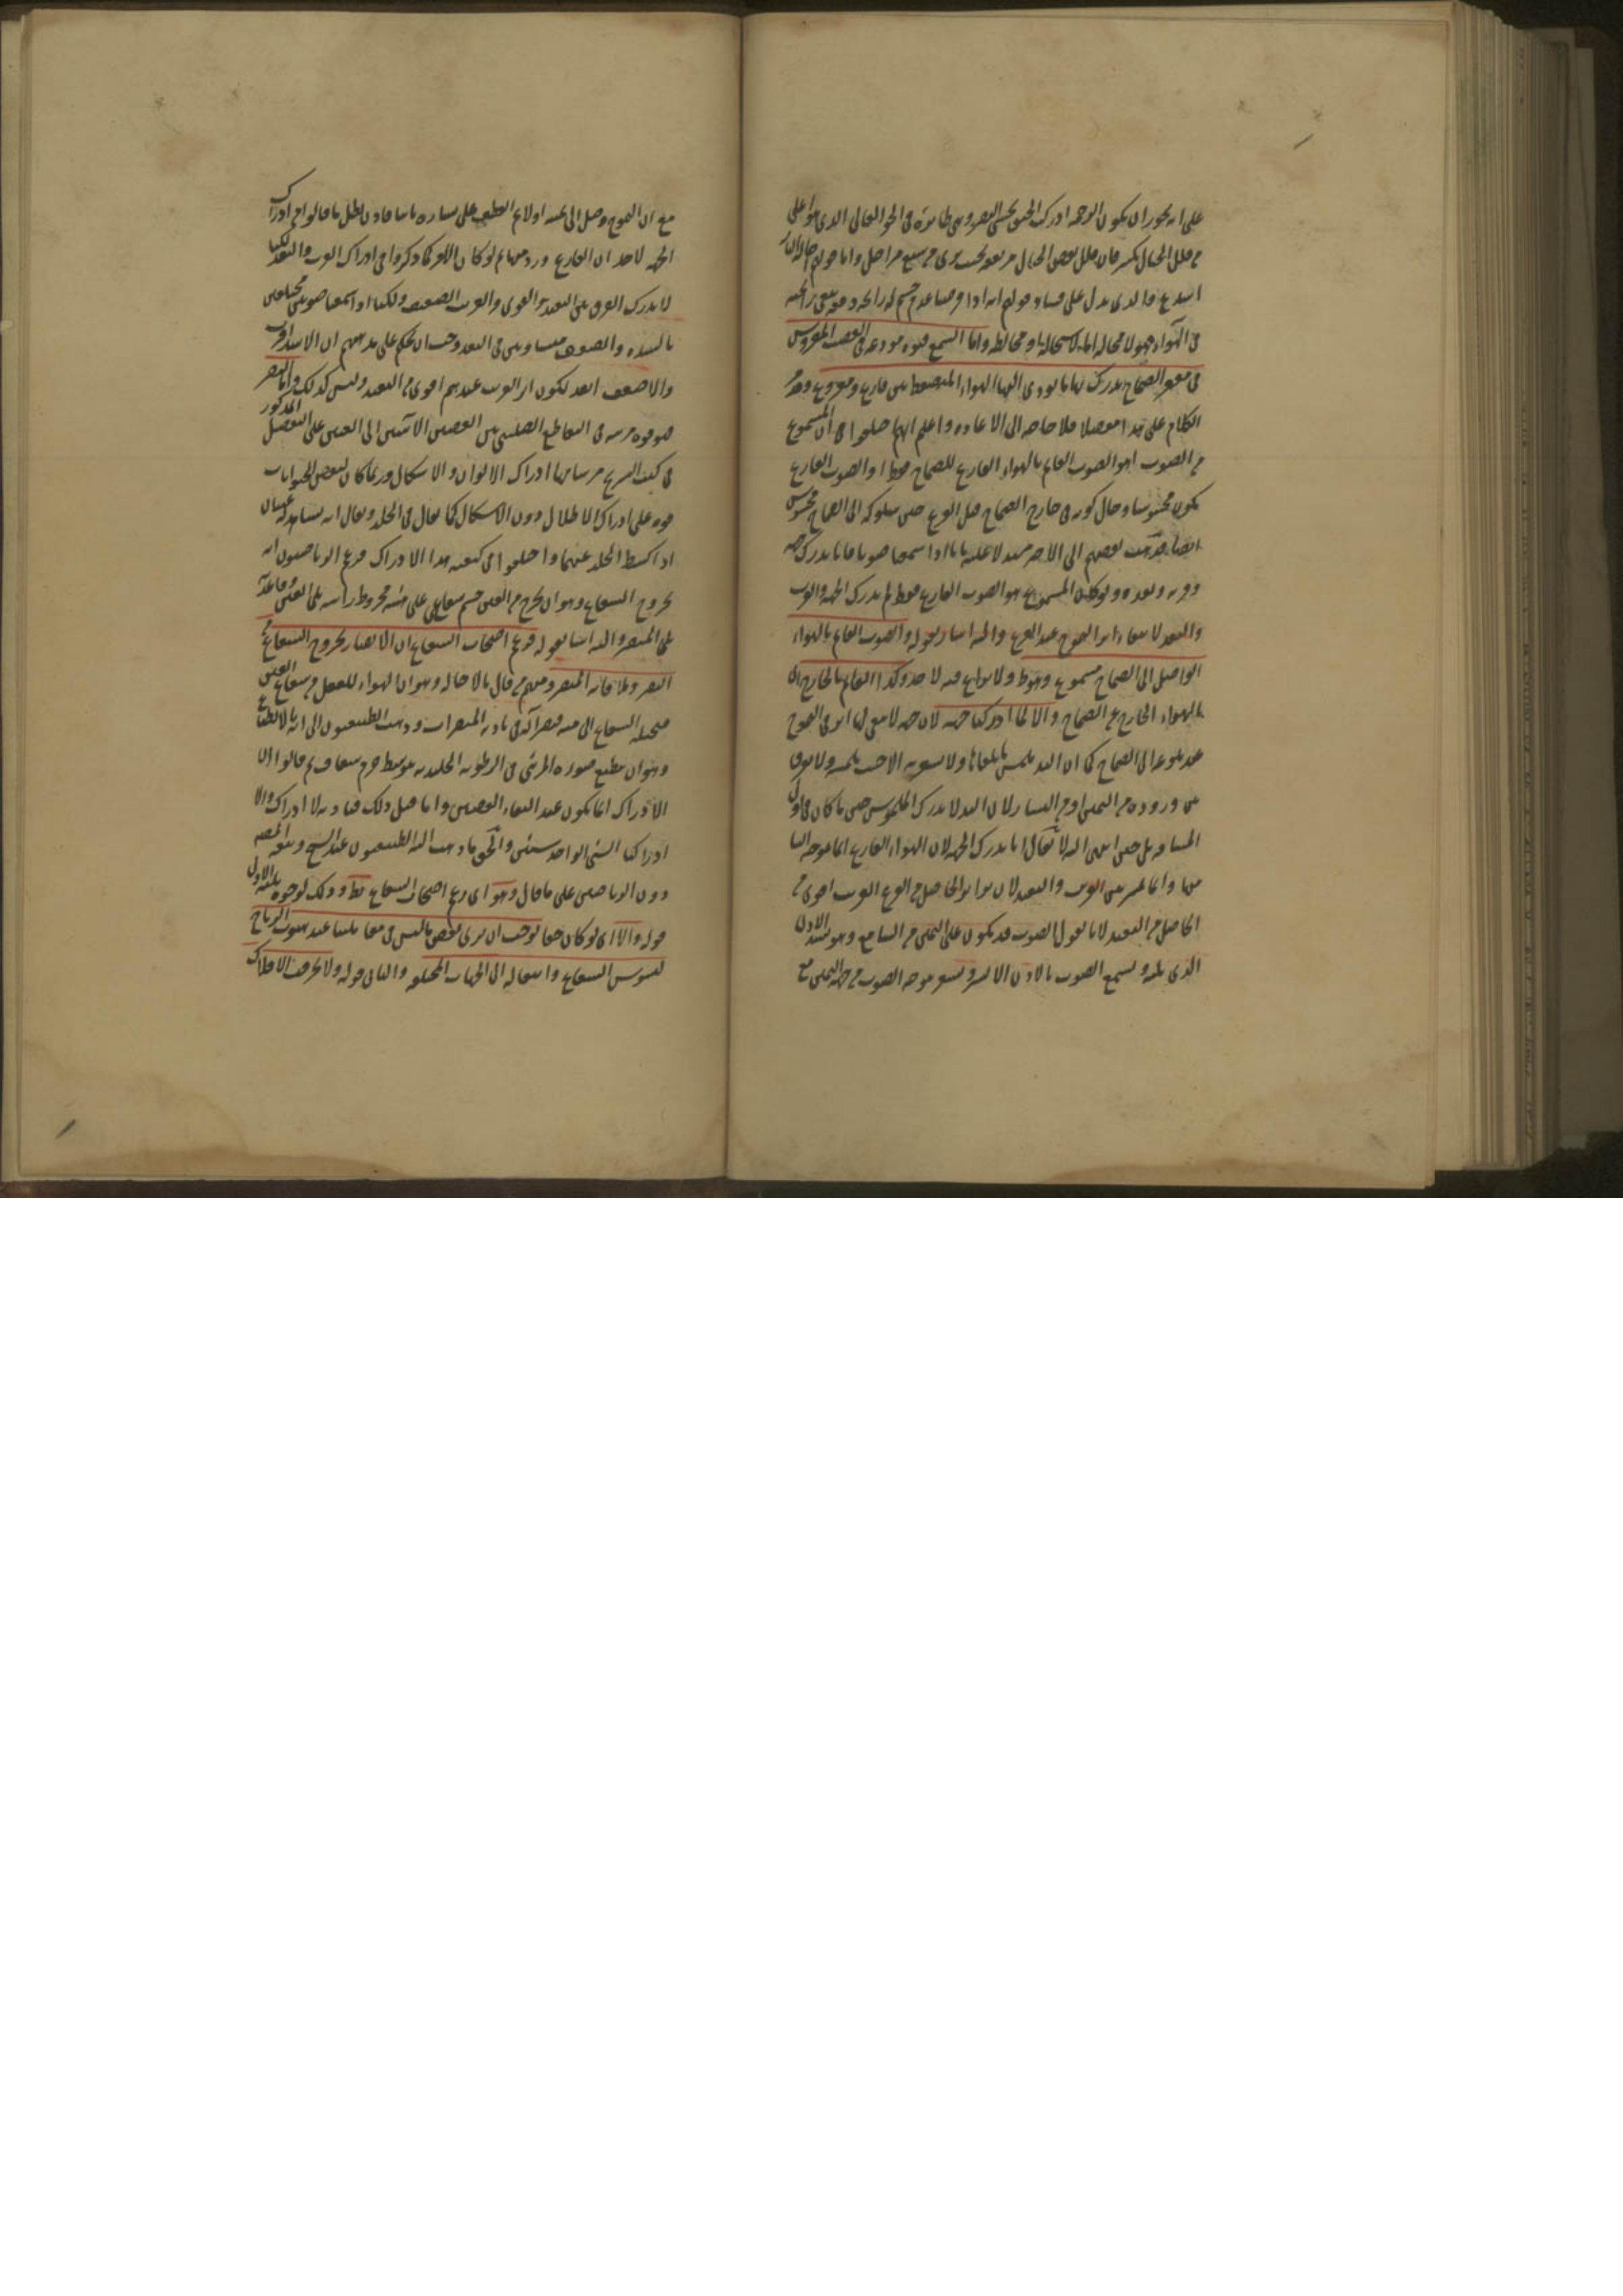 على انه يجوز ان يكون الرحمه ادركت الجيف بحس البصر وهى طائرة فى الجو العالى الذى هو اعلى
من قلل الجبال بكثير فان قلل بعض الجبال مرتفعة بحيث يرى من سبع مراحل واما قولهم حاله النار
فالذى يدل على فساد قولهم انه اذا مر صاعدا جسم له رائحة وبقى رائحته
فى الهواء فهو لا محالة اما لاستحالة او مخالطة واما السمع فقوة مودعة فى العصب المفروش
فى مقعر الصماخ يدرك بها ما يودى اليها الهواء المنضغط بين قارع ومقروع وقد مر
الكلام على هذا مفصلا فلا حاجه الى الاعاده واعلم انهم اختلفوا فى ان المسموع
من الصوت اهو الصوت القائم بالهواء القارع للصماخ فقط او الصوت القارع
يكون محسوسا وحال كونه فى خارج الصماخ قبل القرع حين سلوكه الى الصماخ محسوس
ايضا فذهب بعضهم الى الاخر مستدلا عليه بانا اذا سمعنا صوتا فانا ندرك جهته
وقربه وبعده ولو كان المسموع هو الصوت القارع فقط لم ندرك الجهة والقرب
والبعد لا بقاء اثر التموج عند القرع واليه اشار بقوله والصوت القائم بالهواء
الواصل الى الصماخ مسموع وهو ولا نزاع فيه لاحد وكذا القائم بالخارج اى
بالهواء الخارج عن الصماخ والا لما ادركنا جهته لان جهته لا يبقى لها اثر فى التموج
عند بلوغه الى الصماخ كما ان اليد يلمس ما يلقاها ولا يشعر به الا حيث يلمسه ولا يفرق
بين وروده من اليمين او من اليسار لان اليد لا يدرك الملموس حين ما كان فى اول
المسافه بل حين انتهى اليه لا يقال انا ندرك الجهه لان الهواء القارع انما توجه الينا
منها وانما نميز بين القريب والبعيد لان تواتر الحاصل من القرع القريب اقوى من
الحاصل من البعيد لانا نقول الصوت قد يكون على اليمين من السامع وهو يسد الاذن
الذى يليه ويسمع الصوت بالاذن الايسر ويشعر بوجه الصوت من جهة اليمين مع
مع ان التموج وصل الى يمينه اولا ثم انعطف على يساره فاذن بطل ما قالوا من ادراك
الجهه لاحد ان القارع ورد منها ثم لو كان الامر كما ذكروا فى ادراك القرب والبعد لكنا
لا ندرك الفرق بين البعيد القوى والقريب الضعيف ولكنا اذا سمعنا صوتين مختلفين
بالشدة والضعف متساويين فى البعد وجب ان نحكم على مذهبهم ان الاشد اقرب
والاضعف ابعد لكون اثر القريب عندهم اقوى من البعيد وليس كذلك واما البصر
فهو قوه مرتبه فى التقاطع الصليبى بين العصبتين الاتيتين الى العينين على التفصيل المذكور
فى كتب التشريح من شانها ادراك الالوان والاشكال وربما كان لبعض الحيوانات
قوه على ادراك الاظلال دون الاشكال كما يقال فى الخلد ويقال انه يشاهد له عينان
اذا كشط الجلد عنهما واختلفوا فى كيفيه هذا الادراك فزعم الرياضيون انه
بخروج الشعاع وهو ان يخرج من العين جسم شعاعى على هيئه مخروط راسه يلى العين وقاعدته
يلى المبصر واليه اشار بقوله فزعم اصحاب الشعاع ان الابصار بخروج الشعاع من
البصر وملاقاته المبصر ومنهم من قال بالاحاله وهو ان الهواء ينفعل من شعاع العين
فتحيله الشعاع الى هيئه فيصير آله فى تاديه المبصرات وذهب الطبيعيون الى انه بالانطباع
وهو ان ينطبع صوره المرئى فى الرطوبه الجليديه بتوسط جرم شفاف ثم قالوا ان
الادراك انما يكون عند التقاء العصبتين واما قبل ذلك فتاديه لا ادراك والا
ادراكنا الشئ الواحد شيئين والحق ما ذهب اليه الطبيعيون عند الشيخ وتبعه المصنف
دون الرياضيين على ما قال وهو اى زعم اصحاب الشعاع خطا وذلك لوجوه بلغه الاول
قوله والا اى لو كان حقا لوجب ان نرى بعض ما ليس فى مقابلتنا عند هبوب الرياح
لتشوش الشعاع وانتقاله الى الجهات المختلفه والثانى قوله ولا يخرق الافلاك